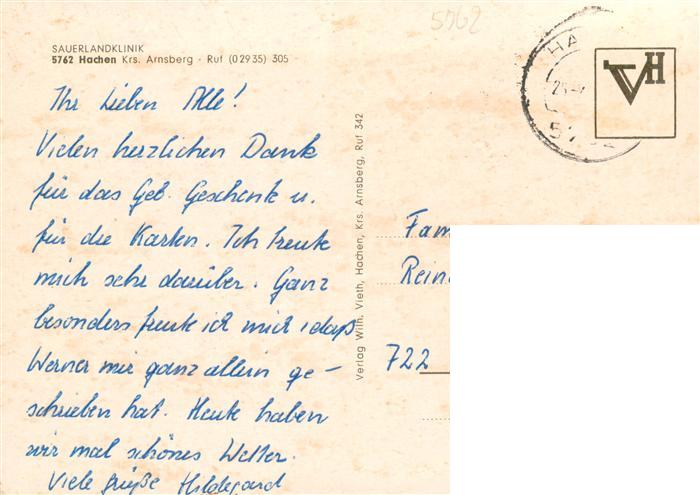 5762
SAUERLANDKLINIK
5762 Hachen Krs. Arnsberg · Ruf (0 29 35) 305
Ihr Lieben Alle!
Vielen herzlichen Dank
für das Geb. Geschenk u.
für die Karten. Ich freute
mich sehr darüber. Ganz
besonders freute ich mich, daß
Werner mir ganz allein ge-
schrieben hat. Heute haben
wir mal schönes Wetter.
Viele Grüße Hildegard
Verlag Wilh. Vieth, Hachen, Krs. Arnsberg, Ruf 342
HA
VH
Fam
Rein
722